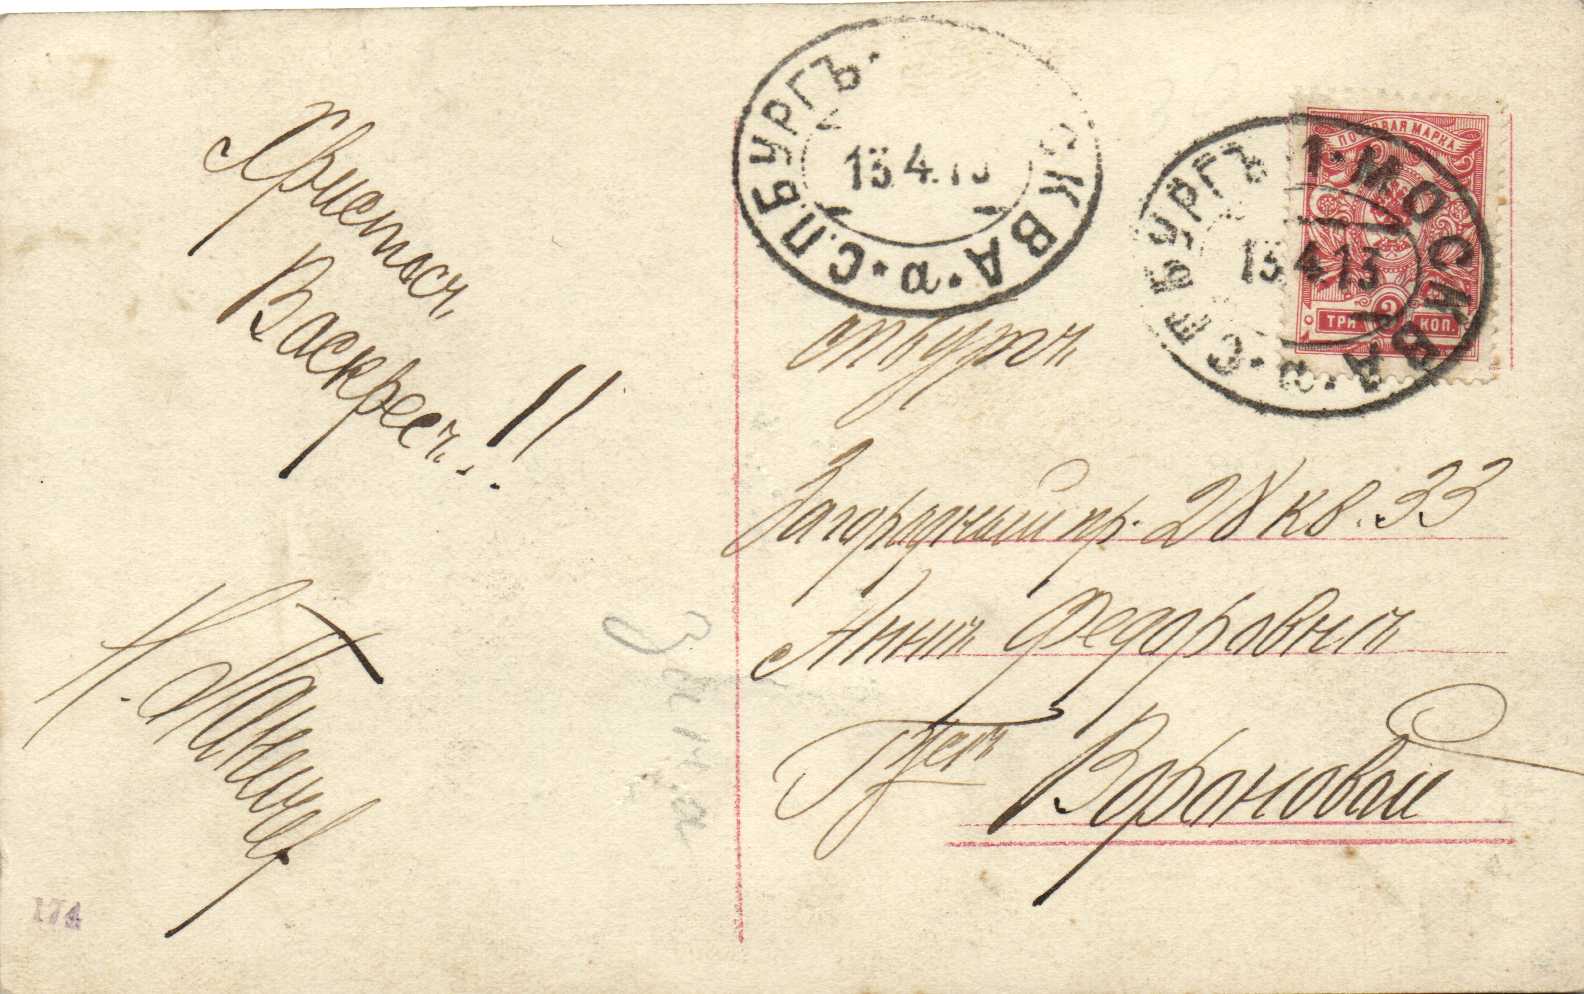 Христосъ
Воскресъ!!
Н.
174
С.П.БУРГЪ · МОСКВА · а
13.4.13
С.П.БУРГЪ 1 · МОСКВА · а
13.4.13
ПОЧТОВАЯ МАРКА
3
ТРИ КОП.
СПБургъ
Загородный пр. 28 кв. 33
Аннѣ Федоровнѣ
Вороновой